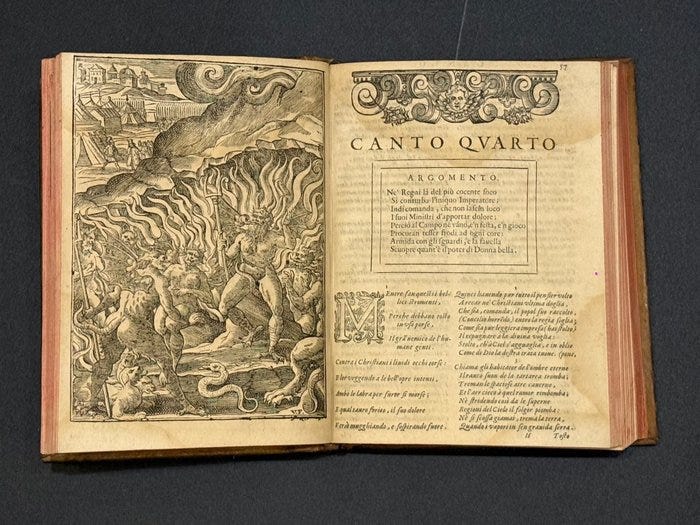 57
CANTO QVARTO
ARGOMENTO.
Ne' Regni là del più cocente foco
Si conturba l'iniquo Imperatore;
Indi comanda, che non lascin loco
I suoi Ministri d'apportar dolore:
Perciò al Campo nè vano, e'n festa, e'n gioco
Procuran tesser frodi ad ogni core:
Armida con gli sguardi, e la fauella
Scuopre quant'è il poter di Donna bella.
Mentre son questi à bel-
lici stromenti,
Perche debbano tosto
in vso porse,
Il gran nemico de l'hu-
mane genti
Contra i Christiani i liuidi occhi torse:
E lor veggendo à le bell'opre intenti,
Ambo le labra per furor si morse;
E qual tauro ferito, il suo dolore
Versò mugghiando, e sospirando fuore.
Quinci hauendo pur tutto il pensier volto
A recar nè Christiani vltima doglia,
Che sia, comanda, il popol suo raccolto,
(Concilio horrendo) entro la regia soglia;
Come sia pur leggiera impresa (ahi stolto)
Il repugnare à la diuina voglia:
Stolto, ch'al Ciel s'agguaglia, e in oblio
Come di Dio la destra irata tuone.
Chiama gli habitator de l'ombre eterne
Il rauco suon de la tartarea tromba;
Treman le spatiose atre cauerne,
Et l'aer cieco à quel rumor rimbomba;
Nè stridendo così da le superne
Regioni del Cielo il folgor piomba;
Nè sì scossa giamai, trema la terra,
Quando i vapori in sen grauida serra.
H Tosto